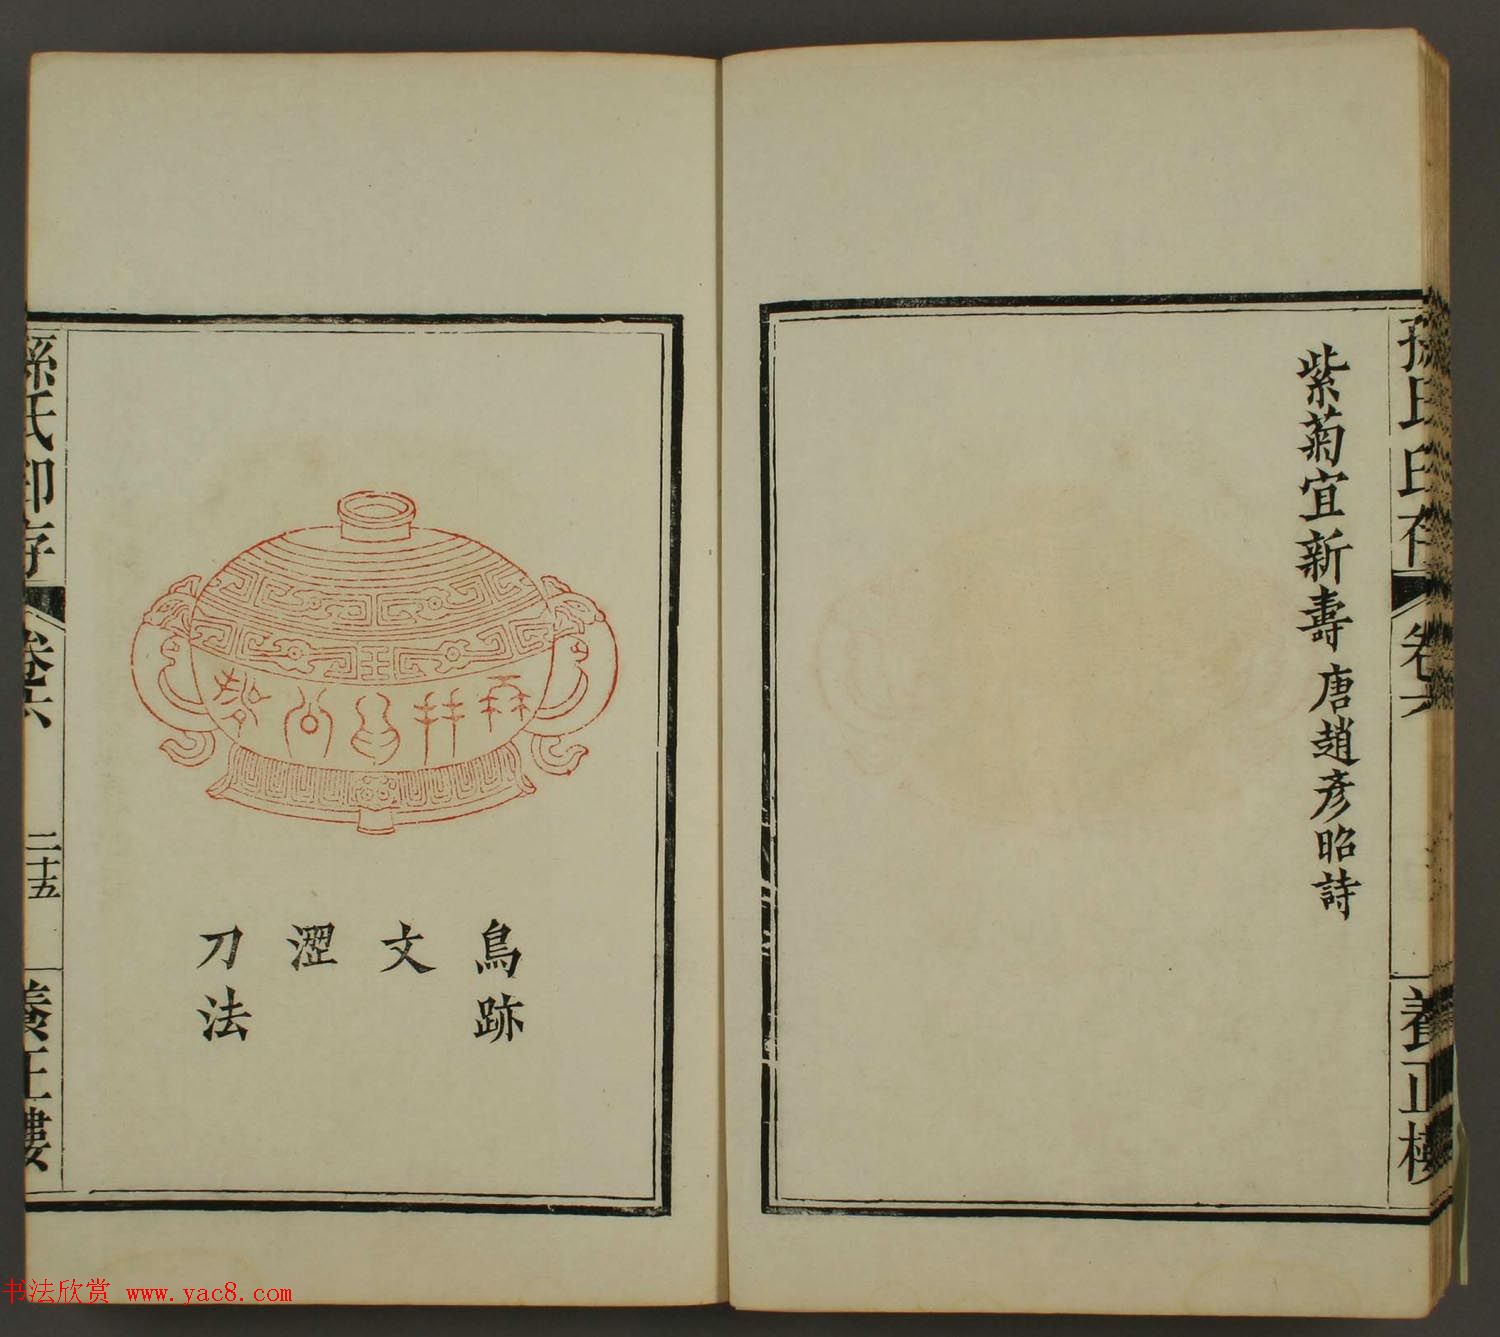 孫氏印存
卷六
養正樓
紫菊宜新壽 唐趙彥昭詩
鳥跡
文
澀
刀法
孫氏印存
卷六
二十五
養正樓
书法欣赏 www.yac8.com